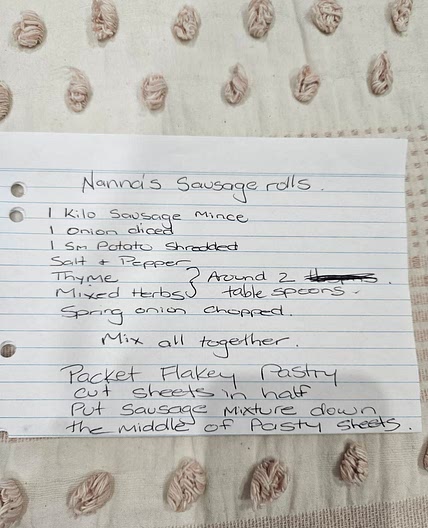 Nanna's Sausage rolls.
1 Kilo Sausage Mince
1 onion diced
1 Sm Potato Shredded
Salt + Pepper
Thyme } Around 2
Mixed Herbs } table spoons.
Spring onion chopped.
Mix all together.
Packet Flakey Pastry
cut sheets in half
Put Sausage Mixture down
the middle of Pasty sheets.